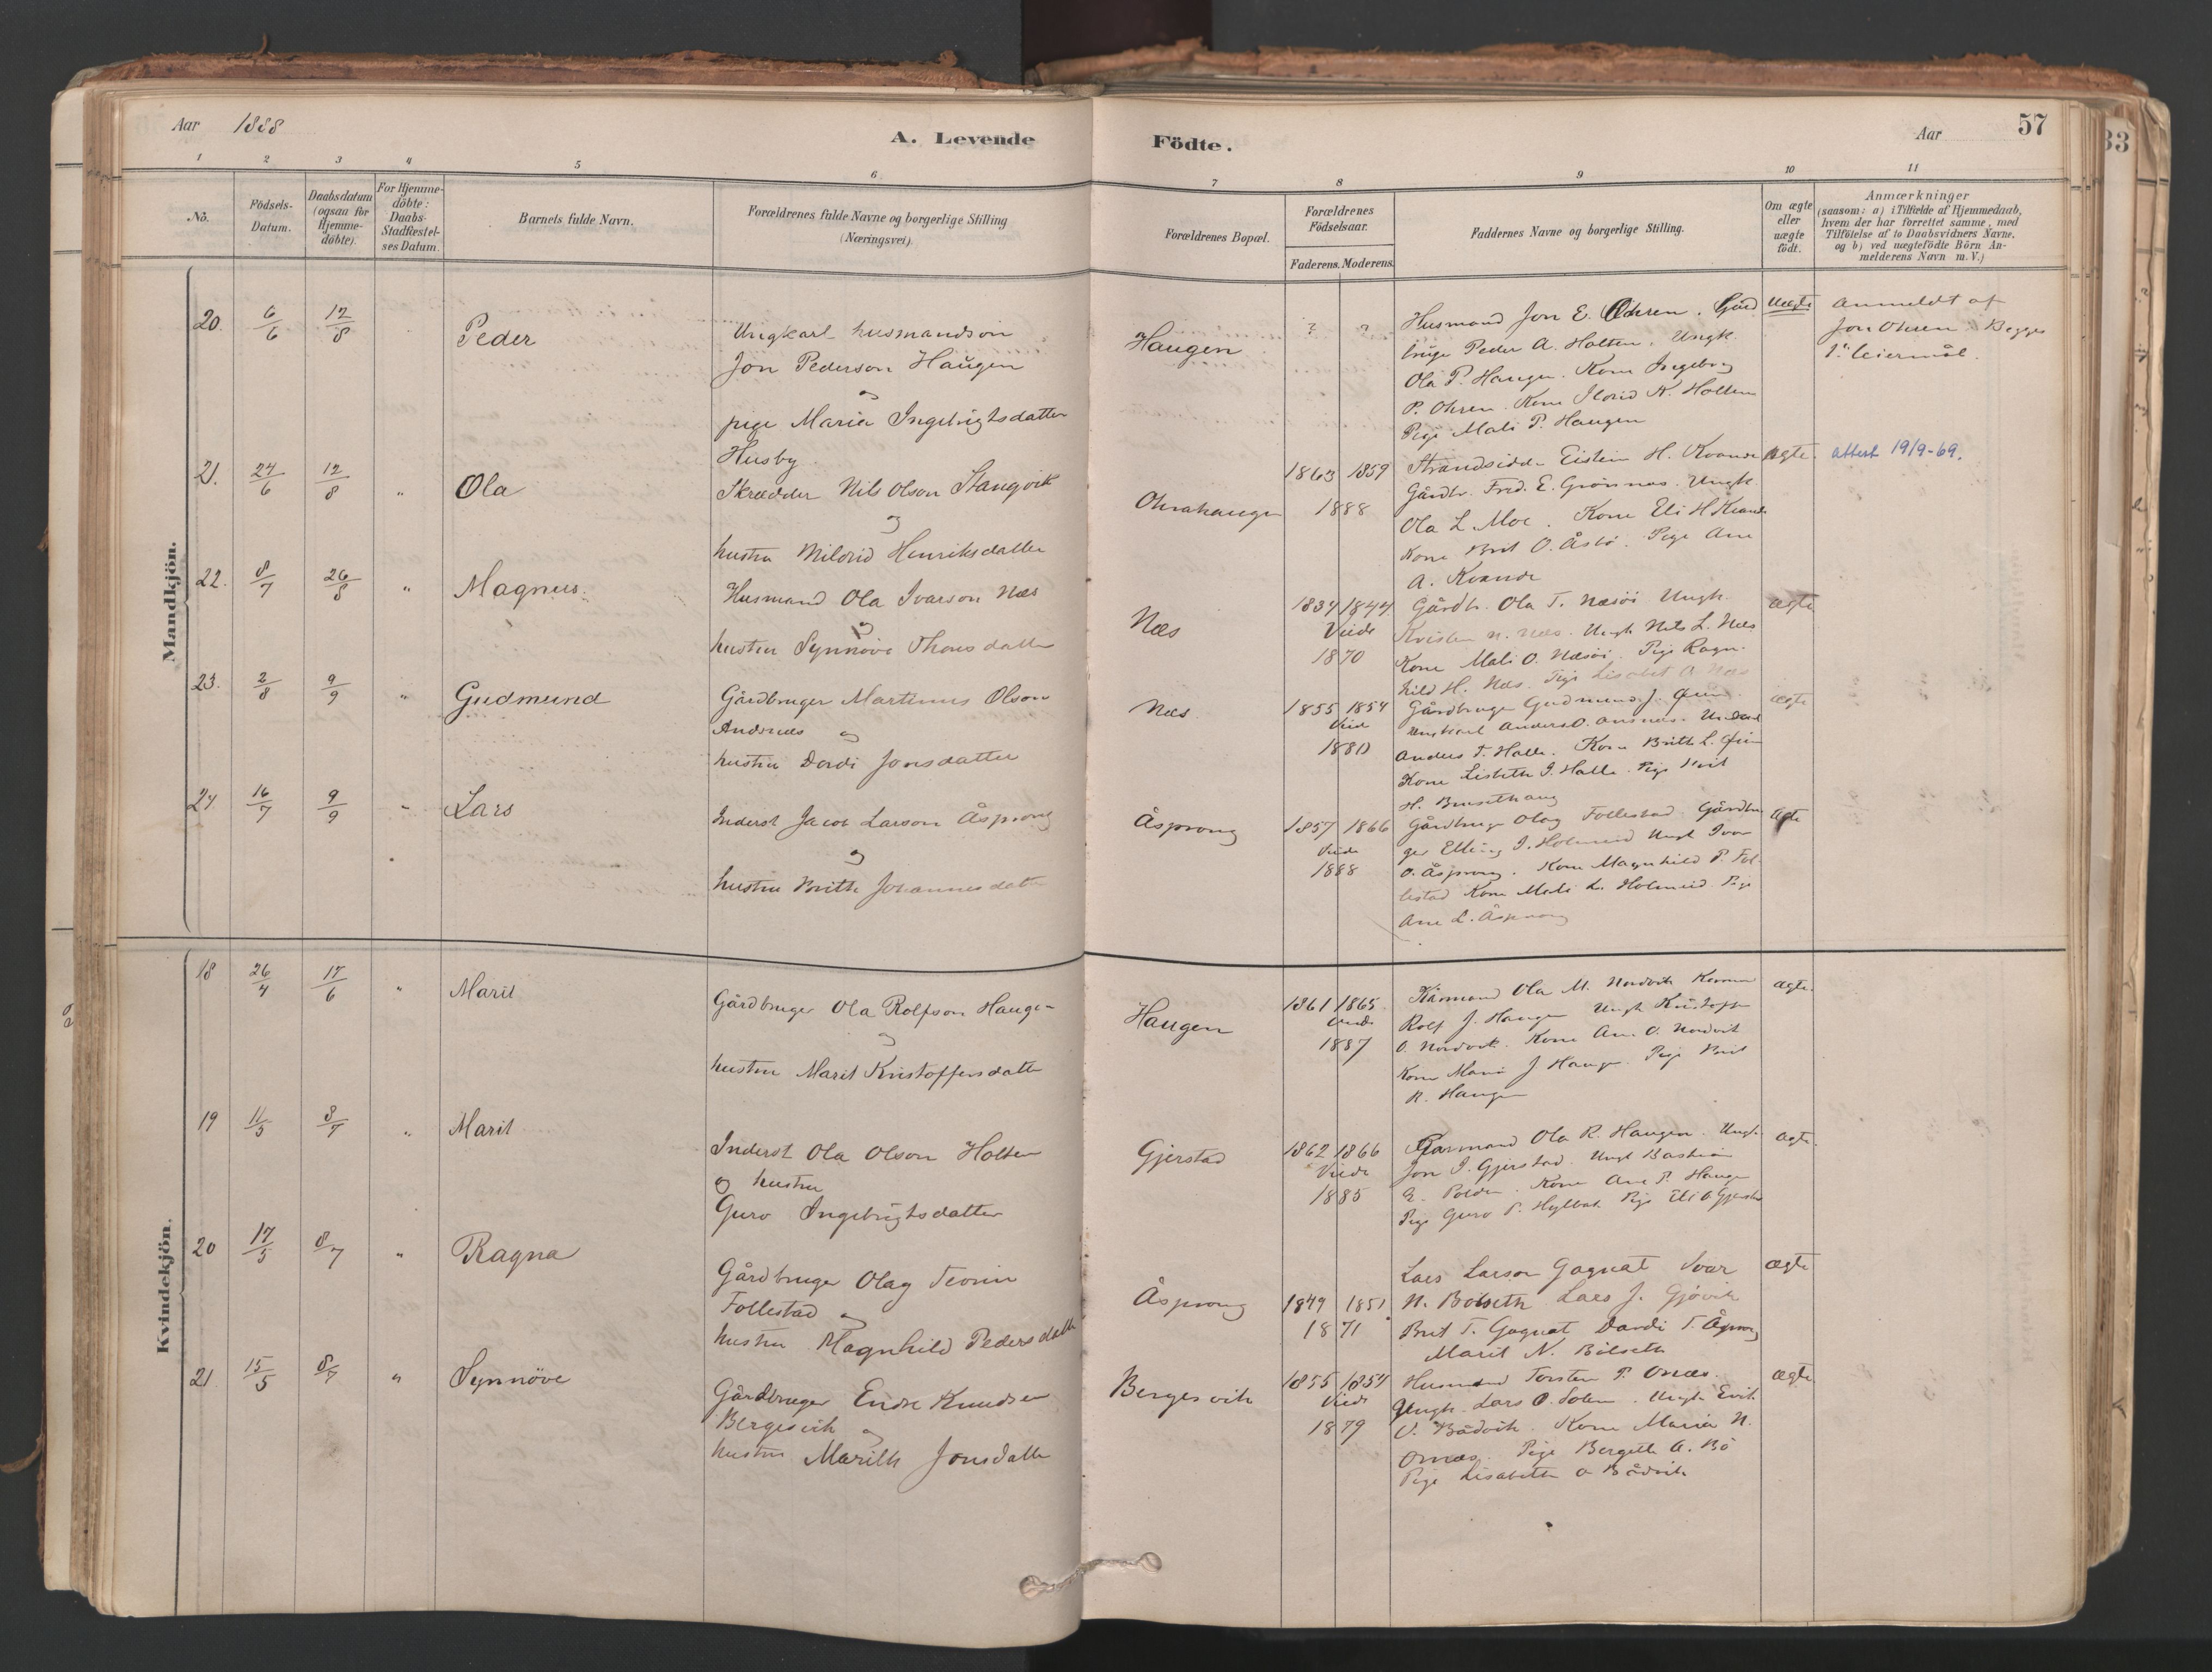 Aar 1888
A. Levende
Födte.
Aar
57
33
1 2 3 4 5 6 7 8 9 10 11
No.
Födsels-
Datum.
Daabsdatum
(ogsaa for
Hjemme-
döbte).
For Hjemme-
döbte:
Daabs-
Stadfæstel-
ses Datum.
Barnets fulde Navn.
Forældrenes fulde Navne og borgerlige Stilling
(Næringsvei).
Forældrenes Bopæl.
Forældrenes
Födselsaar.
Faderens. Moderens.
Faddernes Navne og borgerlige Stilling.
Om ægte
eller
uægte
födt.
Anmærkninger
(saasom: a) i Tilfælde af Hjemmedaab,
hvem der har forrettet samme, med
Tilföielse af to Daabsvidners Navne,
og b) ved uægtefödte Börn An-
melderens Navn m. V.)
Mandkjön.
20. 6/6 12/8 Peder
Ungkarl husmandsön
Jon Pederson Haugen
og
pige Maria Ingebrigtsdatter
Husby
Haugen
? ?
Husmand Jon E. Ohren. Gård
bruger Peder A. Holten. Ungk.
Ola P. Haugen. Kone Ingeborg
P. Ohren. Kone K. Holten
Pige Mali P. Haugen
Uægte
Anmeldt af
Jon Ohren. Begges
1. leiermål.
21. 24/6 12/8 " Ola
Skrædder Nils Olson Stangvik
og
hustru Mildrid Henriksdatter
Ohrahaugen
1863 1859
1888
Strandsidder Eistein H. Kvande
Gårdbr. Fred. E. Grönnes. Ungk
Ola L. Moe. Kone Eli H Kvande
Kone Brit O. Åsbö. Pige Ane
A. Kvande
Ægte.
attest 19/9-69.
22. 8/7 26/8 " Magnus.
Husmand Ola Ivarson Næs
og
hustru Synnöve Thorsdatter
Næs
1834 1844
Viede
1870
Gårdbr. Ola T. Næsöi. Ungk.
Kristen N. Næs. Ungk Nils L. Næs
Kone Mali O. Næsöi. Pige Ragn-
hild H. Næs. Pige Lisabet O Næs
ægte
23. 2/8 9/9 " Gudmund
Gårdbruger Martinus Olson
Andsnæs og
hustru Dordi Jonsdatter
Næs
1855 1854
Viede
1880
Gårdbruger Gudmund J.
Ungkarl Anders O. Ansnæs. Ungkarl
Anders T. Halle. Kone Brith L.
Kone Lisbeth I. Halle. Pige Brit
H. Brusethaug
ægte
24. 16/7 9/9 " Lars
Inderst Jacob Larson Åsprong
og
hustru Brith Johannesdatter
Åsprong
1857 1866
Viede
1888
Gårdbruger Olag Follestad. Gårdbru
ger Elling I. Holmeid Ungk Ivar
O. Åsprong. Kone Magnhild P. Fol-
lestad Kone Mali L. Holmeid. Pige
Ane L. Åsprong
ægte
Kvindekjön.
18 26/4 17/6 " Marit
Gårdbruger Ola Rolfson Haugen
og
hustru Marit Kristoffersdatter
Haugen
1861 1865
Viede
1887
Kårmand Ola M. Nordvik
Rolf J. Haugen Ungk Kristoffer
O. Nordvik. Kone Ane O. Nordvik
Kone Mari J Haugen. Pige Brit
R. Haugen
ægte.
19 11/5 8/7 " Marit
Inderst Ola Olson Holten
og hustru
Guro Ingebrigtsdatter
Gjerstad
1862 1866
Viede
1885
Kårmand Ola R. Haugen. Ungk.
Jon I. Gjerstad. Ungk Bastian
E. Polden. Kone Ane P. Haugen
Pige Guro P. Hylbak Pige Eli O Gjerstad
ægte.
20 17/5 8/7 " Ragna
Gårdbruger Olag
Follestad og
hustru Magnhild Pedersdatter
Åsprong
1849 1851
1871
Lars Larson Gagnat Ivar
N. Bölseth Lars J. Gjövik
Brit T. Gagnat Dordi T. Åsprong
Marit N. Bölseth
ægte
21. 15/5 8/7 " Synnöve
Gårdbruger Endre Knudsen
Bergesvik og
hustru Marith Jonsdatter
Bergesvik
1855 1854
Viede
1879
Husmand Torsten P. Ornæs.
Ungk. Lars O. Solem. Ungk. Erik
O. Bådvik. Kone Maria N.
Ornæs. Pige Bergith A. Bö
Pige Lisabeth O Bådvik
ægte